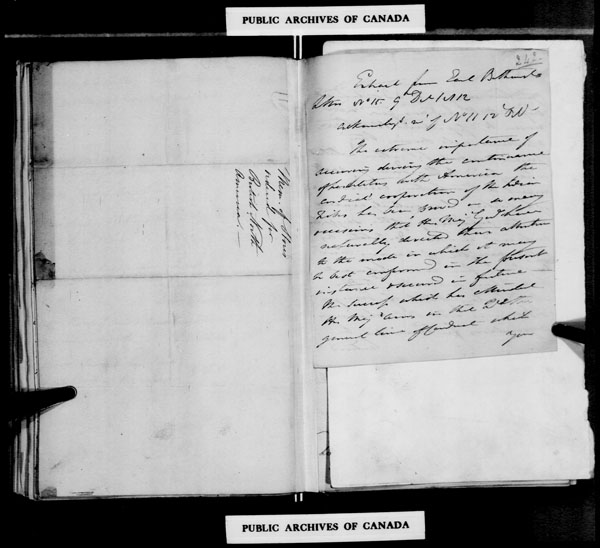 PUBLIC ARCHIVES OF CANADA
Mem. of Stores
ordered for
British North
America
242
Extract from Earl Bathurst's
letter No 15. 9th Dec. 1812
acknowledgt. of No 11 12
The extreme importance of
securing during the continuance
of hostilities with America the
cordial cooperation of the Indian
Tribes has been proved on so many
occasions that His Maj Govt have
naturally directed their attention
to the mode in which it may
be best confirmed in the present
instance & secured in future
The success which has attended
His Maj Arms in the
general line of Conduct which
you
PUBLIC ARCHIVES OF CANADA